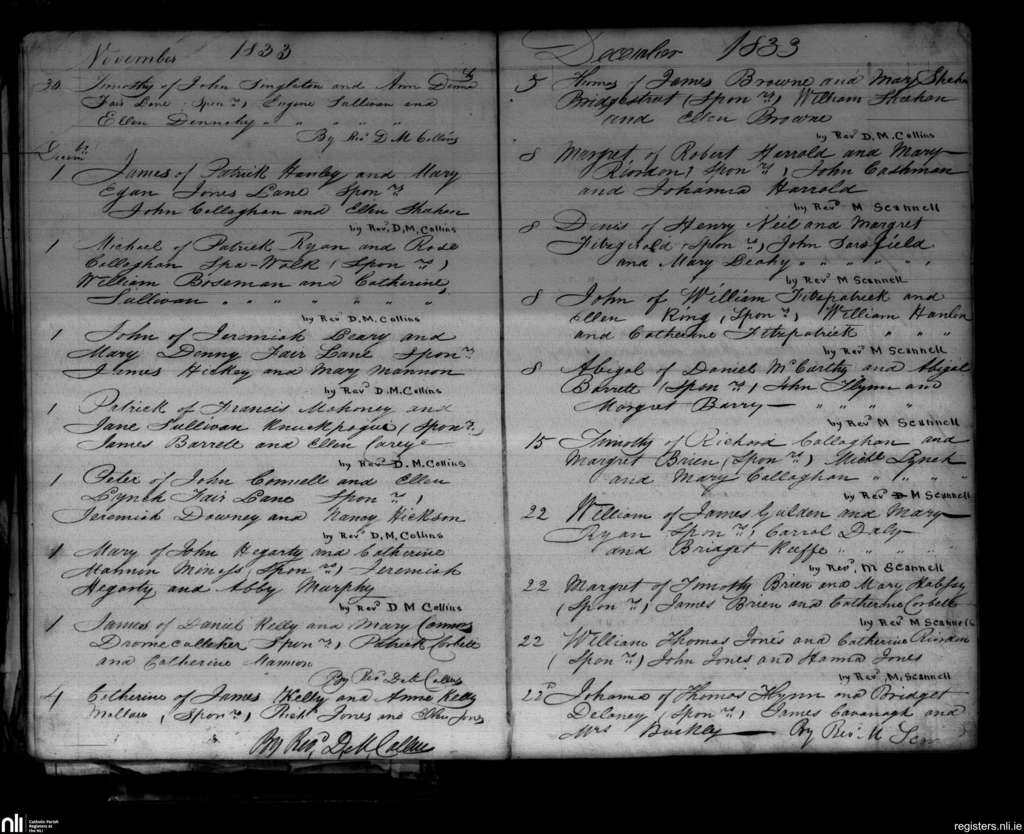 November 1833
30 Timothy of John Singleton and Ann
Fair Lane (Spon rs) Eugene Sullivan and
Ellen Dennehy " " " " "
By Revd D M Collins
Decem br
1 James of Patrick Hanley and Mary
Egan Jones Lane Spon rs
John Callaghan and Ellen Shehan
by Revd D, M, Collins
1 Michael of Patrick Ryan and Rose
Callaghan Spa-Walk (Spon rs)
William Boseman and Catherine
Sullivan " " " " " "
by Revd D, M, Collins
1 John of Jeremiah Leary and
Mary Denny Fair Lane Spon rs
James Hickey and Mary Mannon
by Revd D. M. Collins
1 Patrick of Francis Mahoney and
Jane Sullivan Knuckpogue (Spon rs)
James Barrett and Ellen Carey
by Revd D. M. Collins
1 Peter of John Connell and Ellen
Lynch Fair Lane Spon rs)
Jeremiah Downey and Nancy Hickson
by Revd D, M, Collins
1 Mary of John Hegarty and Catherine
Mannin (Spon rs) Jeremiah
Hegarty and Abby Murphy
by Revd D M Collins
1 James of Daniel Kelly and Mary Connor
Spon rs) Patrick Corbett
and Catherine Mannion
By Revd D M Collins
4 Catherine of James Kelly and Anne Kelly
Mallow, (Spon rs) Richd Jones and Ellen Jones
By Revd D, M, Collins
December 1833
5 Thomas of James Browne and Mary Shehan
Bridgestreet (Spon rs) William Sheehan
and Ellen Browne
by Revd D, M, Collins
8 Margret of Robert Herrold and Mary
Riordon, Spon rs, John Cashman
and Johanna Harrold
by Revd M Scannell
8 Denis of Henry Neil and Margret
Fitzgerald (Spon rs) John Sarsfield
and Mary Leahy " " " " "
by Revd M Scannell
8 John of William Fitzpatrick and
Ellen Ring, (Spon rs) William Hanlon
and Catherine Fitzpatrick " " "
by Revd M Scannell
8 Abigal of Daniel McCarthy and Abigal
Barrett (Spon rs) John Flynn and
Margret Barry " " " "
by Revd M Scannell
15 Timothy of Richard Callaghan and
Margret Brien (Spon rs) Michl Lynch
and Mary Callaghan " " " "
by Revd M Scannell
22 William of James Gulden and Mary
Ryan Spon rs, Carrol Daly
and Bridget Keeffe " " " "
by Revd, M Scannell
22 Margret of Timothy Brien and Mary
(Spon rs) James Brien and Catherine Corbett
by Revd M Scannell
22 William Thomas Jones and Catherine Riordan
(Spon rs) John Jones and Hanna Jones
by Revd, M, Scannell
Johanna of Thomas Flynn and Bridget
Delaney (Spon rs) James Cavanagh and
Mrs Buckley By Revd M
nli
Catholic Parish
Registers at
the NLI
registers.nli.ie